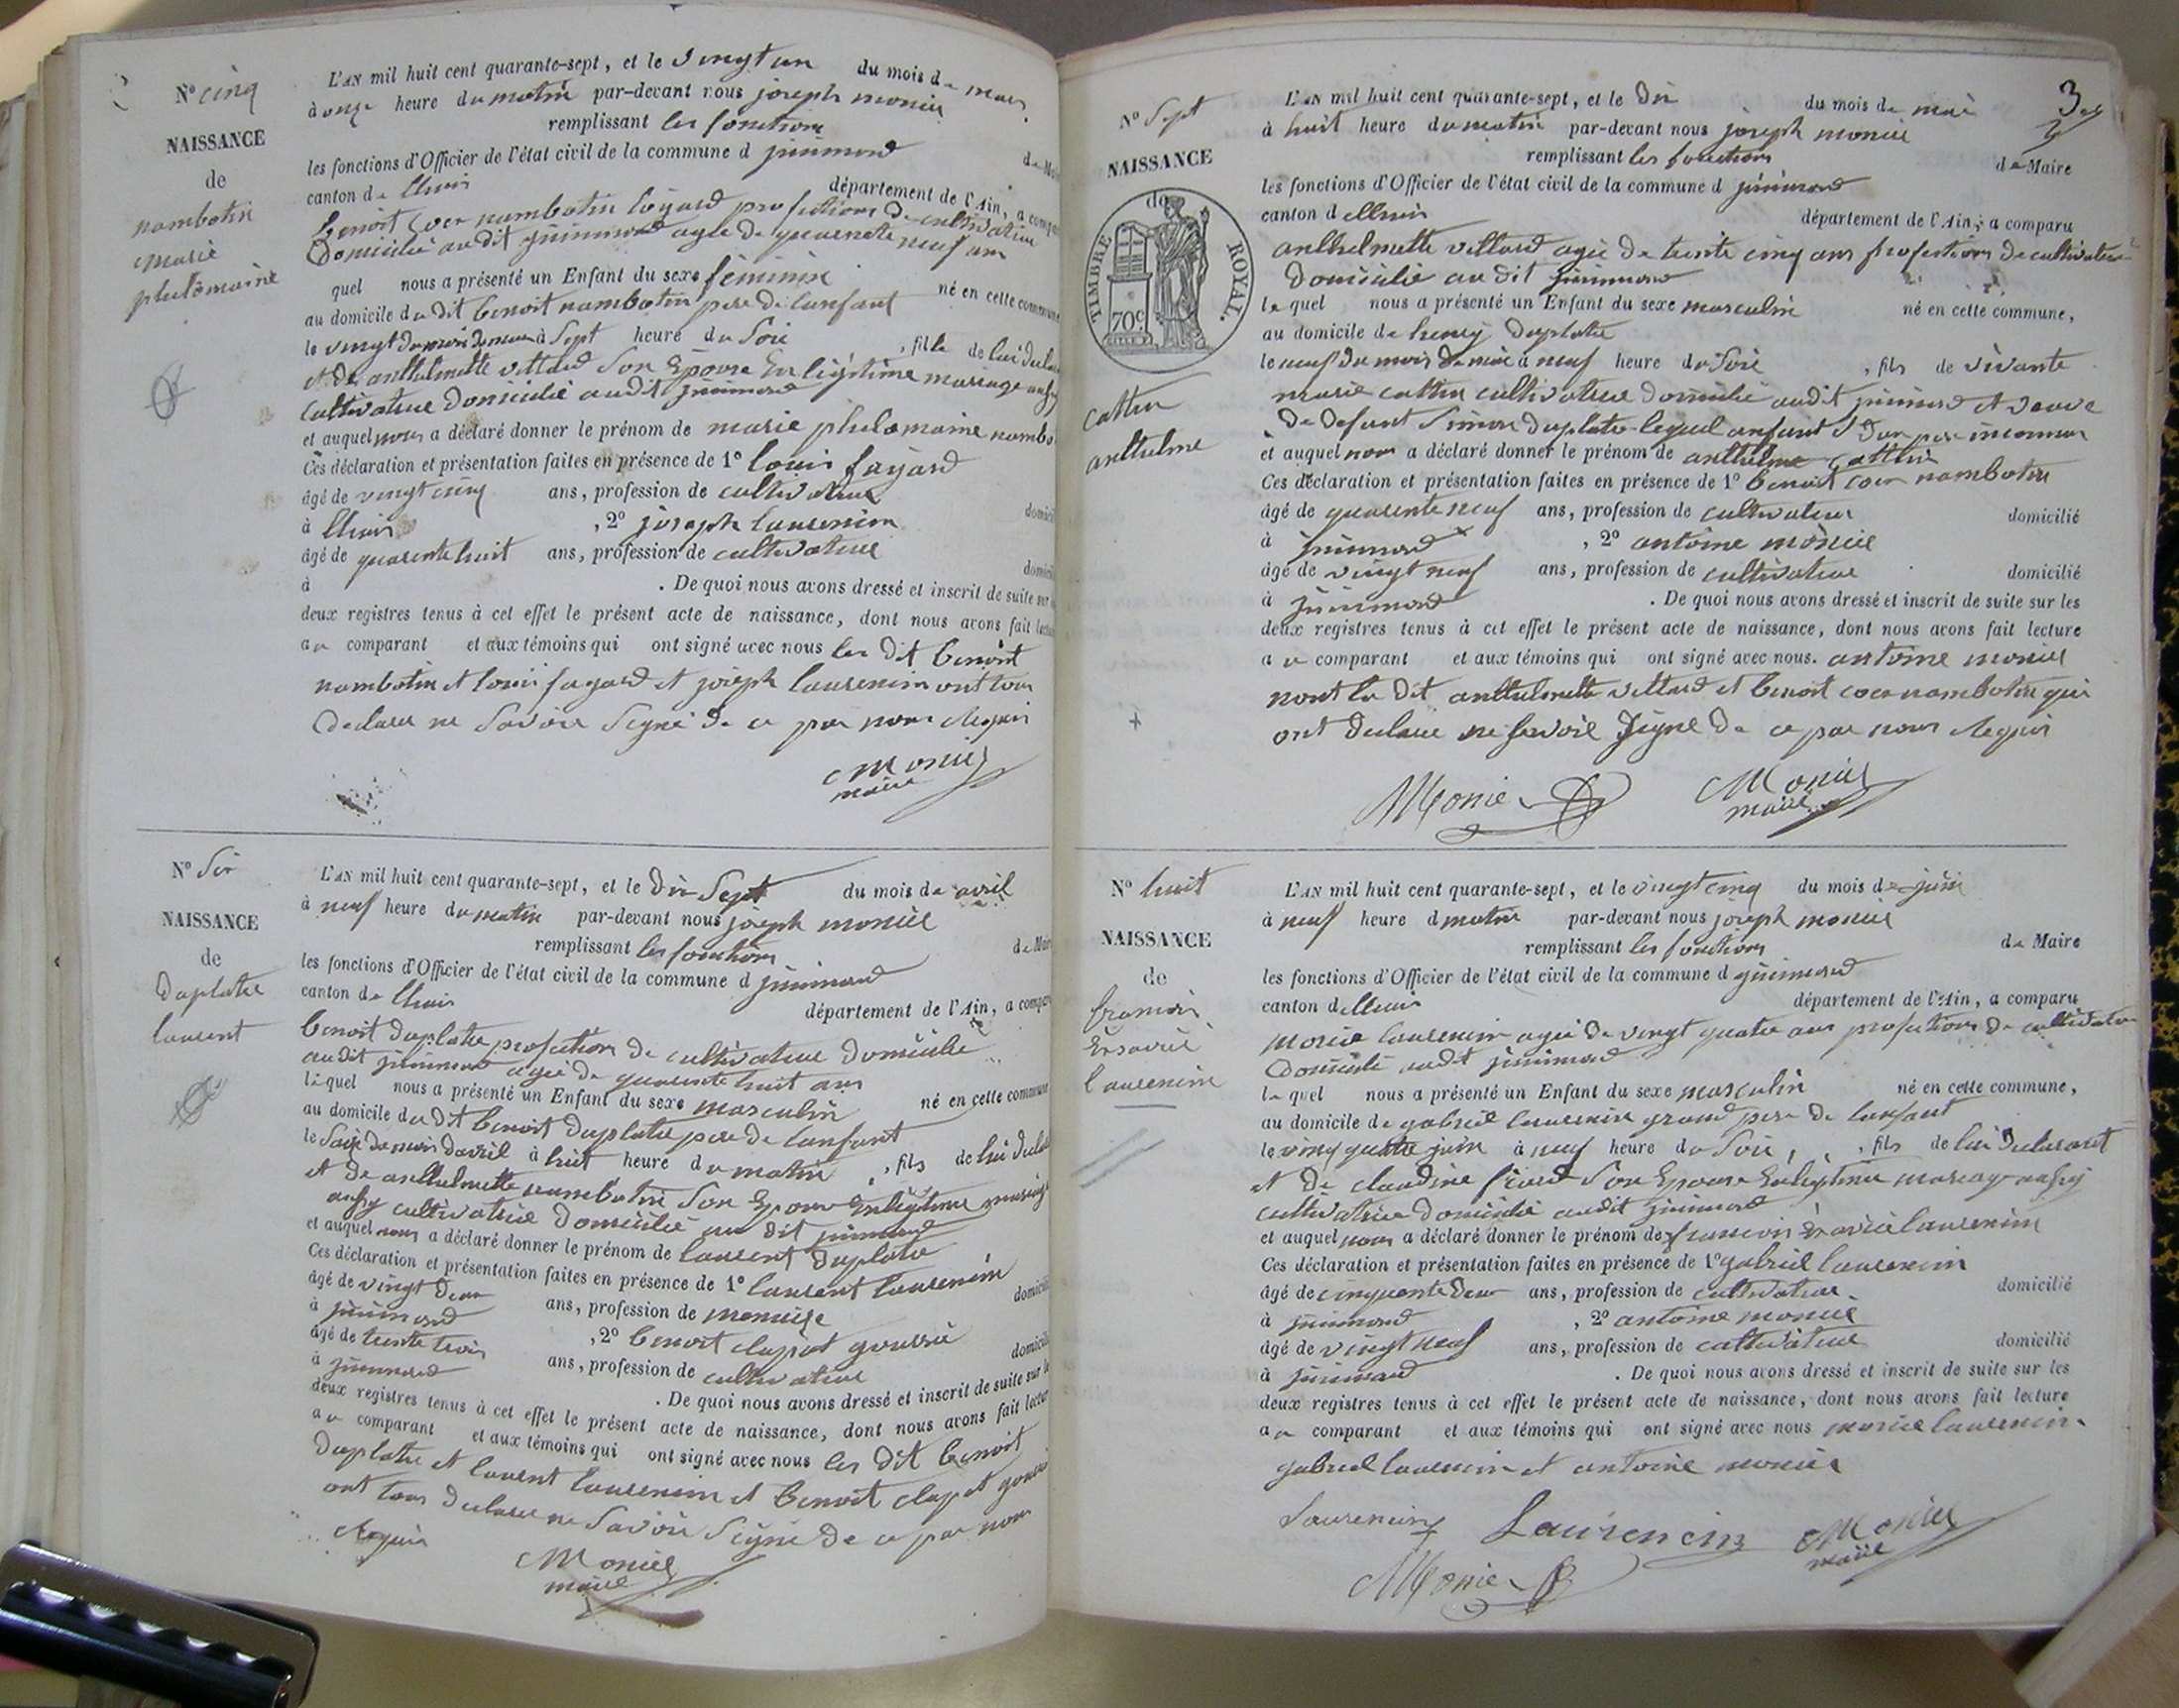 N° cinq
NAISSANCE
de
nambotin
marie
philomaine
L'AN mil huit cent quarante-sept, et le vingt un du mois de mars
à onze heure du matin par-devant nous joseph monier
remplissant les fonctions de
les fonctions d'Officier de l'état civil de la commune d jujurieux
canton de lhuis département de l'Ain, a
benoit nambotin profession de cultivateur
domicilié audit agé de quarente neuf ans
quel nous a présenté un Enfant du sexe féminin né en cette commune
au domicile du dit benoit nambotin pere de lenfant
le vingt du mois de mars à Sept heure du Soir , fille de lui
et de anthelmette villard Son Epouse En légitime mariage
cultivatrice domicilié audit
et auquel nous a déclaré donner le prénom de marie philomaine
Ces déclaration et présentation faites en présence de 1° louis fayard
âgé de vingt cinq ans, profession de cultivateur
à lhuis , 2° joseph laurencin
âgé de quarente huit ans, profession de cultivateur
à . De quoi nous avons dressé et inscrit de suite sur
deux registres tenus à cet effet le présent acte de naissance, dont nous avons fait
au comparant et aux témoins qui ont signé avec nous les dit benoit
nambotin et louis fayard et joseph laurencin ont tous
declare ne Savoir Signé de ce par nous Requis
Monier
maire
N° Six
NAISSANCE
de
duplatre
laurent
L'AN mil huit cent quarante-sept, et le dix Sept du mois de avril
à neuf heure du matin par-devant nous joseph monier
remplissant les fonctions de
les fonctions d'Officier de l'état civil de la commune d
canton de lhuis département de l'Ain, a
benoit duplatre profession de cultivateur domicilié
audit agé de quarente huit ans
le quel nous a présenté un Enfant du sexe masculin né en cette commune
au domicile du dit benoit duplatre pere de lenfant
le Saize du mois davril à huit heure du matin , fils de lui
et de anthelmette nambotin Son Epouse En légitime mariage
aussy cultivatrice domicilié au dit
et auquel nous a déclaré donner le prénom de laurent duplatre
Ces déclaration et présentation faites en présence de 1° laurent laurencin
âgé de vingt deux ans, profession de
à , 2° benoit clapot
âgé de trente trois ans, profession de cultivateur
à . De quoi nous avons dressé et inscrit de suite sur
deux registres tenus à cet effet le présent acte de naissance, dont nous avons fait
au comparant et aux témoins qui ont signé avec nous les dit benoit
duplatre et laurent laurencin et benoit clapot
ont tous declare ne Savoir Signé de ce par nous
Requis
Monier
maire
3
N° Sept
NAISSANCE
de
TIMBRE ROYAL.
70c
cattin
anthelme
L'AN mil huit cent quarante-sept, et le dix du mois de mai
à huit heure du matin par-devant nous joseph monier
remplissant les fonctions de Maire
les fonctions d'Officier de l'état civil de la commune d
canton d lhuis département de l'Ain, a comparu
anthelmette villard agée de trente cinq ans profession de cultivatrice
domicilié au dit
le quel nous a présenté un Enfant du sexe masculin né en cette commune,
au domicile de henry duplatre
le neuf du mois de mai à neuf heure du Soir , fils de vivante
marie cattin cultivatrice domicilié audit et veuve
de defunt Simon duplatre lequel enfant dun pere inconnu
et auquel nous a déclaré donner le prénom de anthelme cattin
Ces déclaration et présentation faites en présence de 1° benoit nambotin
âgé de quarente neuf ans, profession de cultivateur domicilié
à , 2° antoine monier
âgé de vingt neuf ans, profession de cultivateur domicilié
à . De quoi nous avons dressé et inscrit de suite sur les
deux registres tenus à cet effet le présent acte de naissance, dont nous avons fait lecture
au comparant et aux témoins qui ont signé avec nous. antoine monier
non la dit anthelmette villard et benoit nambotin qui
ont declare ne Savoir Signé de ce par nous Requis
Monier Monier
maire
N° huit
NAISSANCE
de
francois
Laurencin
L'AN mil huit cent quarante-sept, et le vingt cinq du mois de juin
à neuf heure d matin par-devant nous joseph monier
remplissant les fonctions de Maire
les fonctions d'Officier de l'état civil de la commune d
canton d lhuis département de l'Ain, a comparu
laurencin agé de vingt quatre ans profession de cultivateur
domicilié audit
le quel nous a présenté un Enfant du sexe masculin né en cette commune,
au domicile de gabriel laurencin grand pere de lenfant
le vingt quatre juin à neuf heure du Soir , fils de lui declarant
et de claudine Son Epouse En légitime mariage aussy
cultivatrice domicilié audit
et auquel nous a déclaré donner le prénom de francois laurencin
Ces déclaration et présentation faites en présence de 1° gabriel laurencin
âgé de cinquante deux ans, profession de cultivateur domicilié
à , 2° antoine monier
âgé de vingt neuf ans, profession de cultivateur domicilié
à . De quoi nous avons dressé et inscrit de suite sur les
deux registres tenus à cet effet le présent acte de naissance, dont nous avons fait lecture
au comparant et aux témoins qui ont signé avec nous laurencin
gabriel laurencin et antoine monier
Laurencin Laurencin Monier
maire
Monier